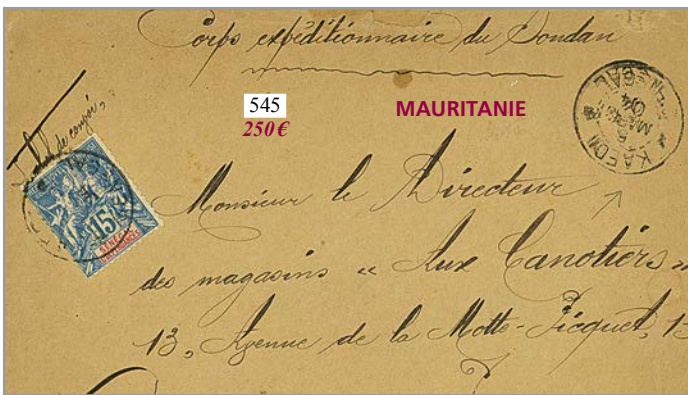 Corps expéditionnaire du Soudan
545
250 €
MAURITANIE
KAEDI
5
MARS
04
SÉNÉGAL
de congé,
15
SÉNÉGAL
Monsieur le Directeur
des magasins « Aux Canotiers »
13, Avenue de la Motte-Picquet, 13